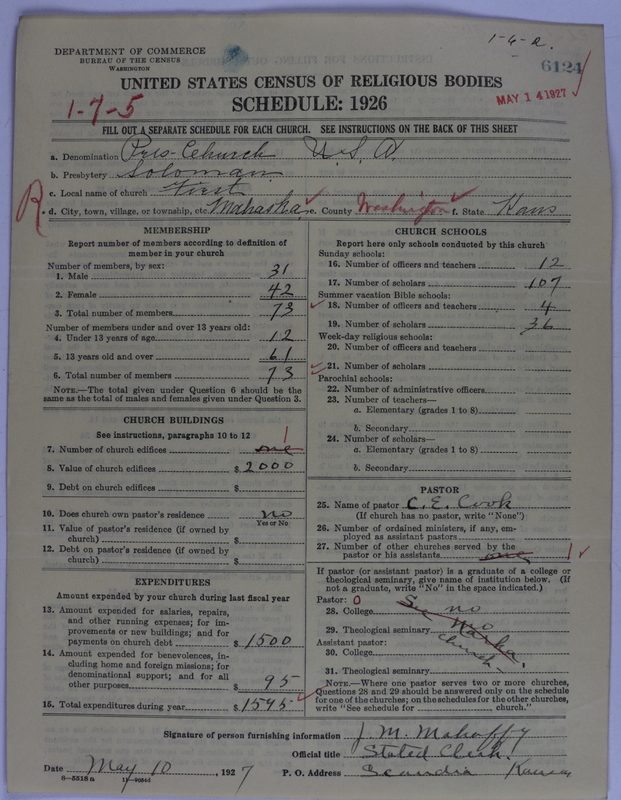 1-6-2.
DEPARTMENT OF COMMERCE
BUREAU OF THE CENSUS
WASHINGTON
6124
UNITED STATES CENSUS OF RELIGIOUS BODIES
1-7-5
SCHEDULE: 1926
MAY 14 1927
FILL OUT A SEPARATE SCHEDULE FOR EACH CHURCH. SEE INSTRUCTIONS ON THE BACK OF THIS SHEET
a. Denomination Pres-Church U.S.A.
b. Presbytery Soloman
c. Local name of church First
R
d. City, town, village, or township, etc. Mahaska e. County Washington f. State Kans
MEMBERSHIP
Report number of members according to definition of
member in your church
Number of members, by sex:
1. Male 31
2. Female 42
3. Total number of members 73
Number of members under and over 13 years old:
4. Under 13 years of age 12
5. 13 years old and over 61
6. Total number of members 73
NOTE.—The total given under Question 6 should be the
same as the total of males and females given under Question 3.
CHURCH BUILDINGS
See instructions, paragraphs 10 to 12
7. Number of church edifices one 1
8. Value of church edifices $ 2000
9. Debt on church edifices $
10. Does church own pastor's residence no
Yes or No
11. Value of pastor's residence (if owned by
church) $
12. Debt on pastor's residence (if owned by
church) $
EXPENDITURES
Amount expended by your church during last fiscal year
13. Amount expended for salaries, repairs,
and other running expenses; for im-
provements or new buildings; and for
payments on church debt $ 1500
14. Amount expended for benevolences, in-
cluding home and foreign missions; for
denominational support; and for all
other purposes $ 95
15. Total expenditures during year $ 1595
CHURCH SCHOOLS
Report here only schools conducted by this church
Sunday schools:
16. Number of officers and teachers 12
17. Number of scholars 107
Summer vacation Bible schools:
18. Number of officers and teachers 4
19. Number of scholars 36
Week-day religious schools:
20. Number of officers and teachers
21. Number of scholars
Parochial schools:
22. Number of administrative officers
23. Number of teachers—
a. Elementary (grades 1 to 8)
b. Secondary
24. Number of scholars—
a. Elementary (grades 1 to 8)
b. Secondary
PASTOR
25. Name of pastor C. E. Cook
(If church has no pastor, write "None")
26. Number of ordained ministers, if any, em-
ployed as assistant pastors
27. Number of other churches served by the
pastor or his assistants one 1
If pastor (or assistant pastor) is a graduate of a college or
theological seminary, give name of institution below. (If
not a graduate, write "No" in the space indicated.)
Pastor: 0
28. College See no
29. Theological seminary no
Church
Assistant pastor:
30. College
31. Theological seminary
NOTE.—Where one pastor serves two or more churches,
Questions 28 and 29 should be answered only on the schedule
for one of the churches; on the schedules for the other churches,
write "See schedule for ........ church."
Signature of person furnishing information J. M. Mahaffy
Official title Stated Clerk.
Date May 10, 1927 P. O. Address Scandia Kansas
8—5518a